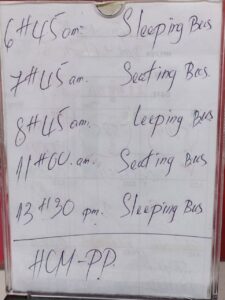 6H45am. Sleeping Bus
7H45am. Seating Bus.
8H45am. Leeping Bus
11H00.am. Seating Bus
13H30 pm. Sleeping Bus
HCM-P.P.